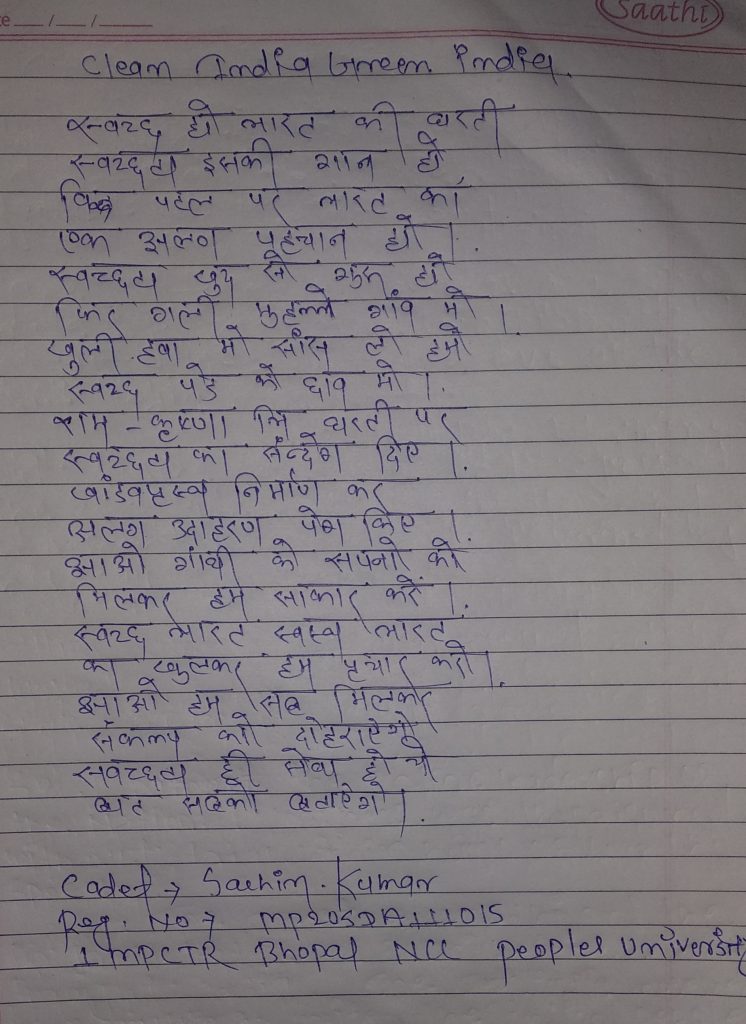 Saathi
te __/__/__
Clean India Green India.
स्वच्छ हो भारत की धरती
स्वच्छता इसकी शान हो
विश्व पटल पर भारत की
एक अलग पहचान हो।
स्वच्छता खुद से शुरू हो
फिर गली मुहल्ले गांव में।
खुली हवा में सांस लें हमें
स्वच्छ पेड़ की छांव में।
राम - कृष्णा धरती पर
स्वच्छता का सन्देश दिए।
खांडवप्रस्थ निर्माण कर
अलग उदाहरण पेश किए।
आओ गांधी के सपनों को
मिलकर हम साकार करें।
स्वच्छ भारत स्वस्थ भारत
का खुलकर हम प्रचार करें।
आओ हम सब मिलकर
संकल्प को दोहराऐगे
स्वच्छता ही सेवा है ये
बात सबको बताऐगे।
Cadet → Sachin. Kumar
Reg. No → MP20SDA111015
1 MPCTR Bhopal NCC Peoples University